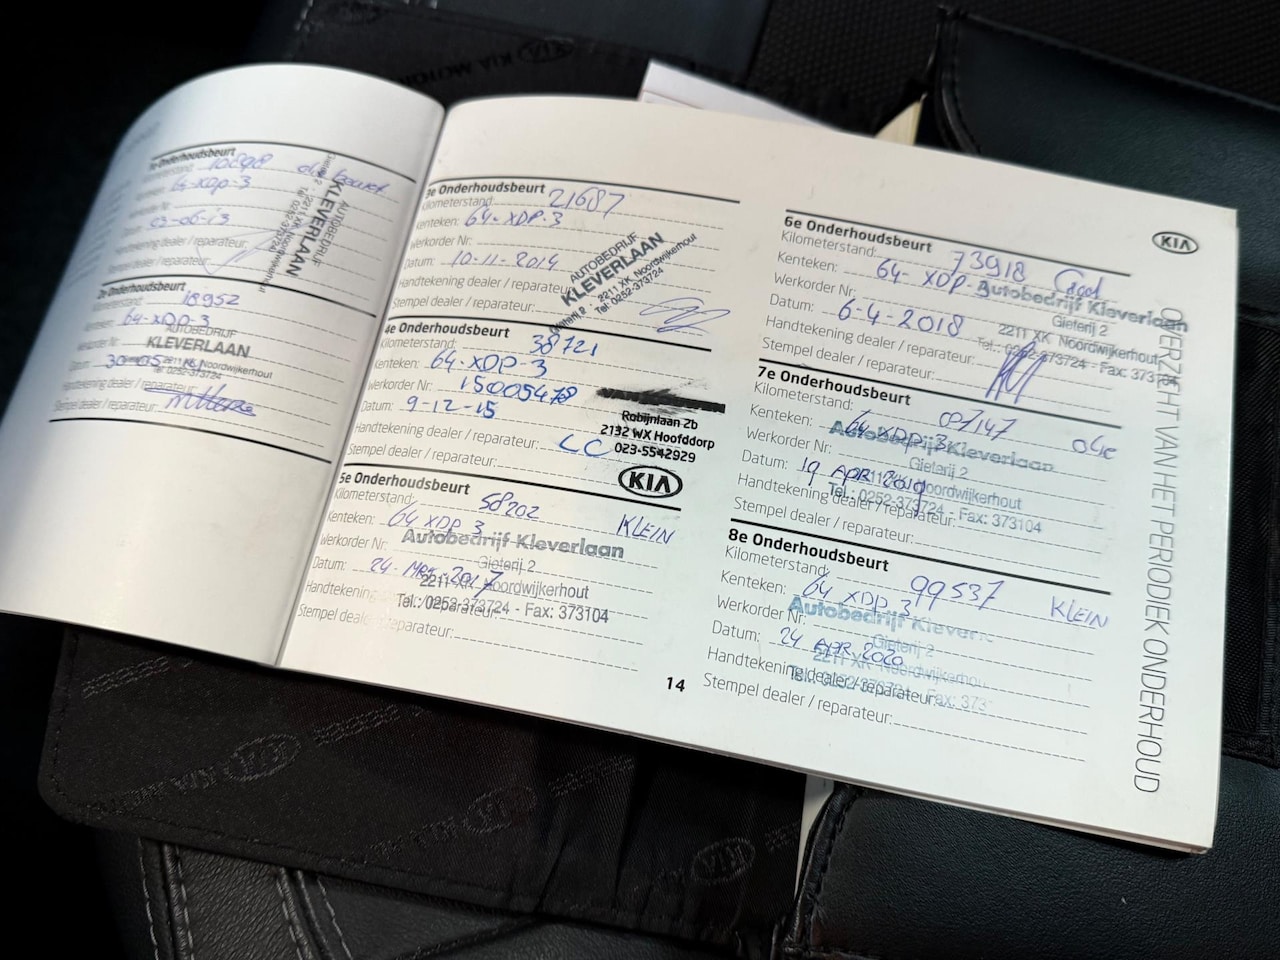 1e Onderhoudsbeurt
Kilometerstand: 10898
Kenteken: 64-XDP-3
Werkorder Nr:
Datum: 03-06-13
Handtekening dealer / reparateur:
Stempel dealer / reparateur:
AUTOBEDRIJF
KLEVERLAAN
2211 XK Noordwijkerhout
Tel: 0252-373724
2e Onderhoudsbeurt
Kilometerstand: 18952
Kenteken: 64-XDP-3
Werkorder Nr:
Datum: 30-05-14
Handtekening dealer / reparateur:
Stempel dealer / reparateur:
AUTOBEDRIJF
KLEVERLAAN
2211 XK Noordwijkerhout
Tel: 0252-373724
3e Onderhoudsbeurt
Kilometerstand: 21687
Kenteken: 64-XDP-3
Werkorder Nr:
Datum: 10-11-2014
Handtekening dealer / reparateur:
Stempel dealer / reparateur:
AUTOBEDRIJF
KLEVERLAAN
Gieterij 2 - 2211 XK Noordwijkerhout
Tel: 0252-373724
4e Onderhoudsbeurt
Kilometerstand: 38721
Kenteken: 64-XDP-3
Werkorder Nr: 15005478
Datum: 9-12-15
Handtekening dealer / reparateur: LC
Stempel dealer / reparateur:
Robijnlaan 2b
2132 WX Hoofddorp
023-5542929
KIA
5e Onderhoudsbeurt
Kilometerstand: 58202
Kenteken: 64 XDP 3 KLEIN
Werkorder Nr:
Datum: 24 MRT 2017
Handtekening dealer / reparateur:
Stempel dealer / reparateur:
Autobedrijf Kleverlaan
Gieterij 2
2211 XK Noordwijkerhout
Tel.: 0252-373724 - Fax: 373104
14
KIA
6e Onderhoudsbeurt
Kilometerstand: 73918 Groot
Kenteken: 64 XDP 3
Werkorder Nr:
Datum: 6-4-2018
Handtekening dealer / reparateur:
Stempel dealer / reparateur:
Autobedrijf Kleverlaan
Gieterij 2
2211 XK Noordwijkerhout
Tel.: 0252-373724 - Fax: 373104
7e Onderhoudsbeurt
Kilometerstand: 087147
Kenteken: 64 XDP 3
Werkorder Nr:
Datum: 19 APR 2019
Handtekening dealer / reparateur:
Stempel dealer / reparateur:
Autobedrijf Kleverlaan
Gieterij 2
2211 XK Noordwijkerhout
Tel.: 0252-373724 - Fax: 373104
8e Onderhoudsbeurt
Kilometerstand: 99537
Kenteken: 64 XDP 3 KLEIN
Werkorder Nr:
Datum: 24 APR 2020
Handtekening dealer / reparateur:
Stempel dealer / reparateur:
Autobedrijf Klever
Gieterij 2
2211 XK Noordwijkerhou
Tel.: 0252-373724 - Fax: 373
OVERZICHT VAN HET PERIODIEK ONDERHOUD
KIA MOTORS
KIA
KIA
KIA